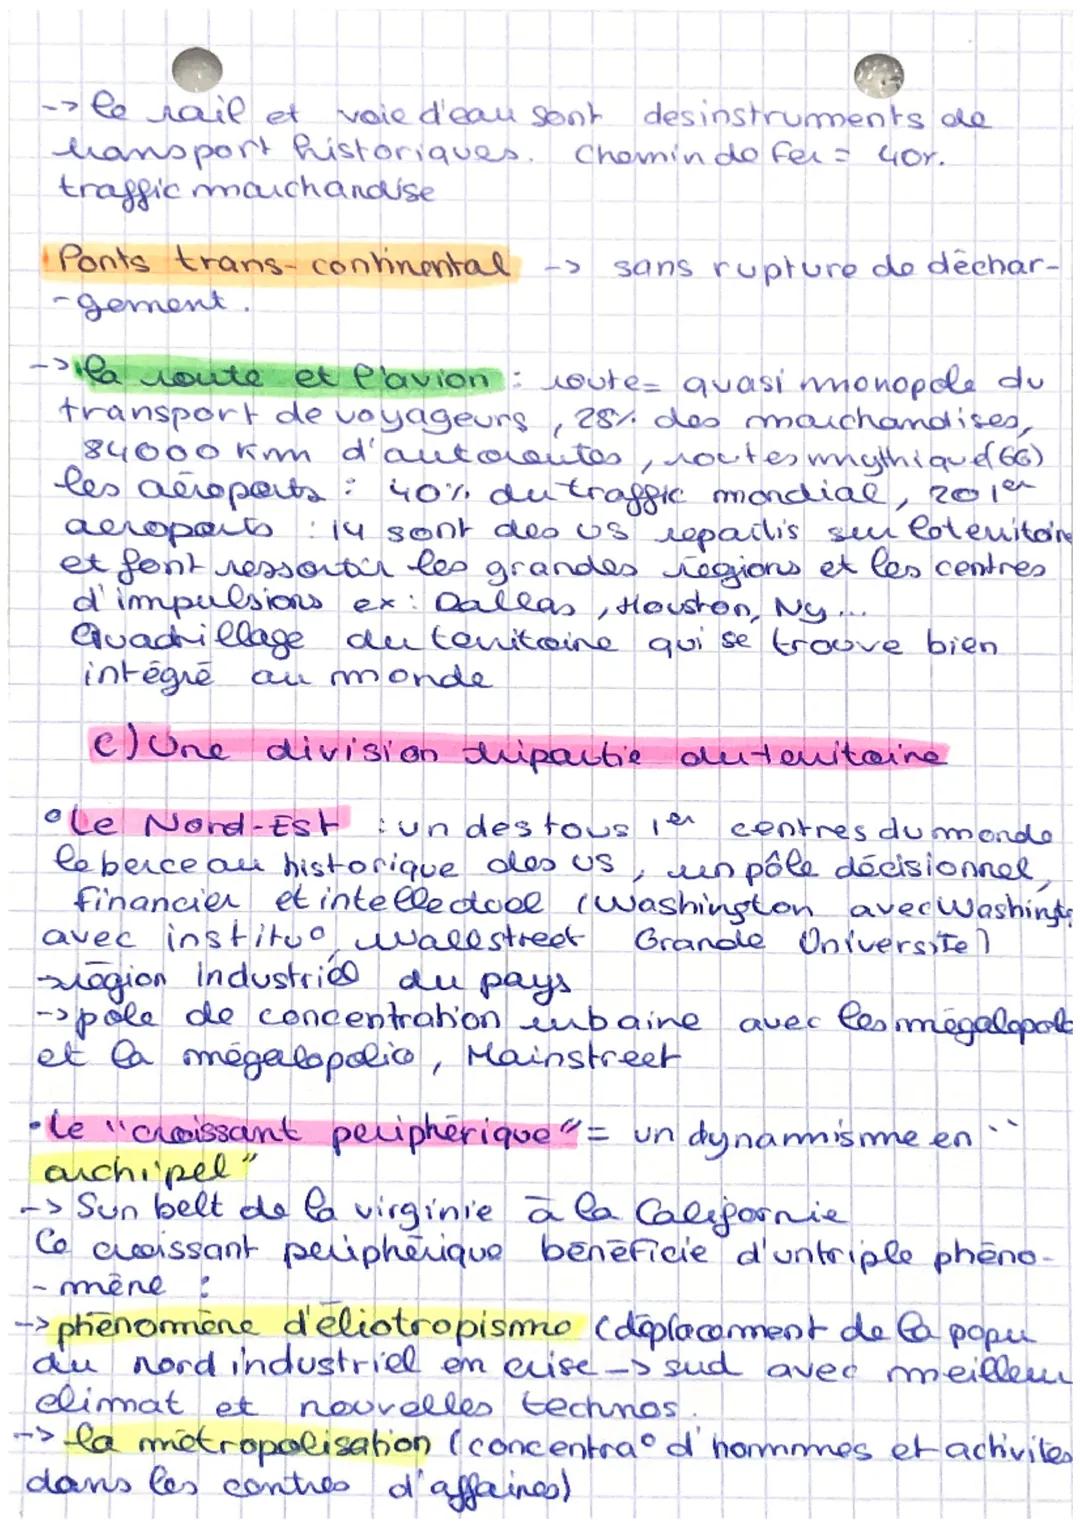 -> le rail et voie d'eau sont des instruments de
transport historiques. Chemin de fer = 40%.
traffic marchandise
Ponts trans-continental -> sans rupture de déchar-
-gement.
-> la route et l'avion : route = quasi monopole du
transport de voyageurs, 28% des marchandises,
84000 km d'autoroutes, routes mythique (66)
les aéroports : 40% du traffic mondial, 20 1er
aeroports : 14 sont des US repartis sur le territoire
et font ressortir les grandes régions et les centres
d'impulsions ex : Dallas, Houston, Ny...
Quadrillage du territoire qui se trouve bien
intégré au monde
c) Une division tripartie du territoire
• Le Nord-Est : un des tous 1er centres du monde
le berceau historique des US, un pôle décisionnel,
financier et intellectuel (Washington avec Washingt
avec institu°, Wallstreet Grande Université)
-> région industriel du pays
-> pole de concentration urbaine avec les mégalopol
et la mégalopolis, Mainstreet
• Le "croissant periphérique" = un dynamisme en "
archipel"
-> Sun belt de la virginie à la Californie
Ce croissant periphérique bénéficie d'un triple phéno-
-mène :
-> phénomène d'éliotropisme (déplacement de la popu
du nord industriel en crise -> sud avec meilleur
climat et nouvelles technos.
-> la métropolisation (concentra° d'hommes et activites
dans les centres d'affaires)